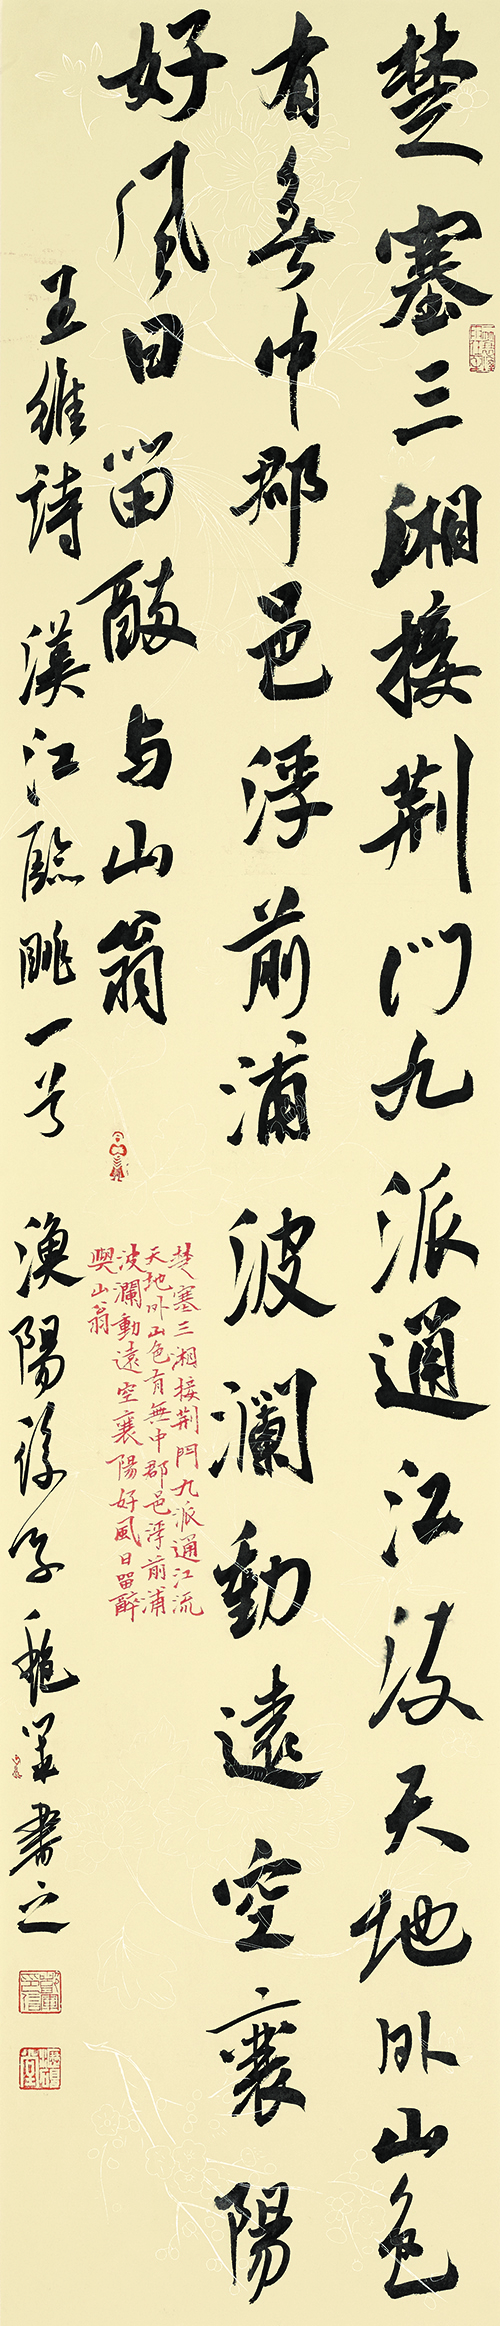 楚塞三湘接荆門九派通江流天地外山色
有無中郡邑浮前浦波瀾動遠空襄陽
好風日留醉与山翁
楚塞三湘接荆門九派通江流
天地外山色有無中郡邑浮前浦
波瀾動遠空襄陽好風日留醉
與山翁
王維詩 漢江臨眺一首 漁陽 書之